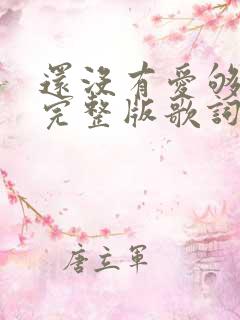 還沒有愛够
完整版歌詞
唐立軍